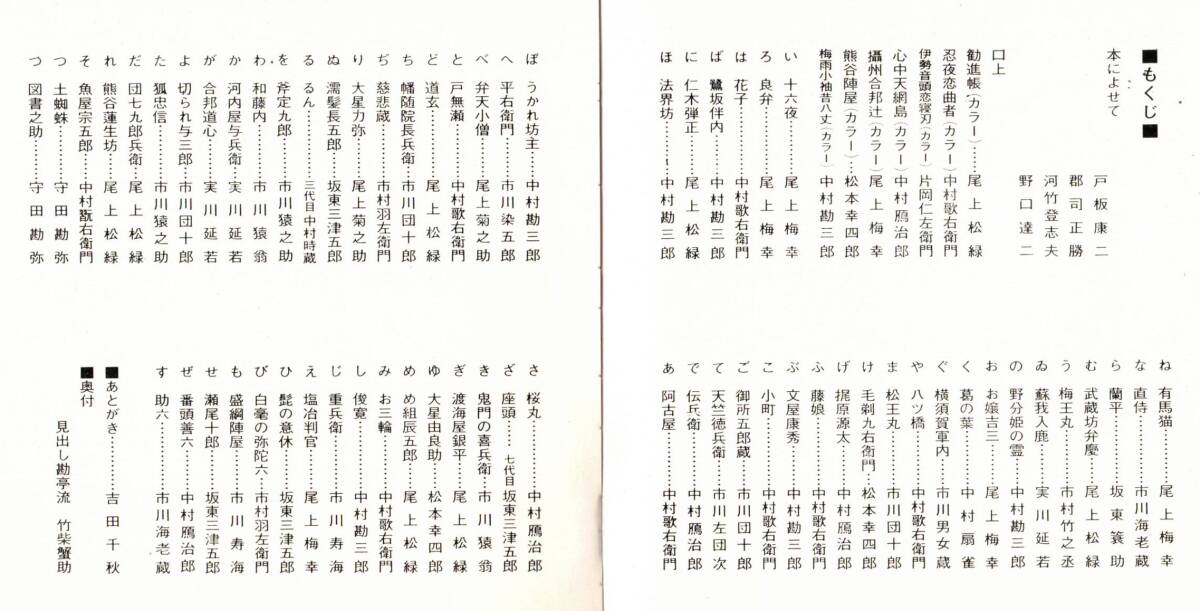 ■もくじ■
本によせて
戸板康二
郡司正勝
河竹登志夫
野口達二
口上
勧進帳(カラー)………尾上松緑
忍夜恋曲者(カラー)中村歌右衛門
伊勢音頭恋寝刃(カラー)片岡仁左衛門
心中天網島(カラー)中村鴈治郎
攝州合邦辻(カラー)尾上梅幸
熊谷陣屋(カラー)…松本幸四郎
梅雨小袖昔八丈(カラー)中村勘三郎
い 十六夜………尾上梅幸
ろ 良弁………尾上梅幸
は 花子………中村歌右衛門
ば 鷺坂伴内………中村勘三郎
に 仁木弾正………尾上松緑
ほ 法界坊………中村勘三郎
ぼ うかれ坊主………中村勘三郎
へ 平右衛門………市川染五郎
べ 弁天小僧………尾上菊之助
と 戸無瀬………中村歌右衛門
ど 道玄………尾上松緑
ち 幡随院長兵衛………市川団十郎
ぢ 慈悲蔵………市村羽左衛門
り 大星力弥………尾上菊之助
ぬ 濡髪長五郎………坂東三津五郎
る るん………三代目中村時蔵
を 斧定九郎………市川猿之助
わ 和藤内………市川猿翁
か 河内屋与兵衛………実川延若
が 合邦道心………実川延若
よ 切られ与三郎………市川団十郎
た 狐忠信………市川猿之助
だ 団七九郎兵衛………尾上松緑
れ 熊谷蓮生坊………尾上松緑
そ 魚屋宗五郎………中村翫右衛門
つ 土蜘蛛………守田勘弥
つ 図書之助………守田勘弥
ね 有馬猫………尾上梅幸
な 直侍………市川海老蔵
ら 蘭平………坂東簑助
む 武蔵坊弁慶………尾上松緑
う 梅王丸………市村竹之丞
ゐ 蘇我入鹿………実川延若
の 野分姫の霊………中村勘三郎
お お嬢吉三………尾上梅幸
く 葛の葉………中村扇雀
ぐ 横須賀軍内………市川男女蔵
や 八ツ橋………中村歌右衛門
ま 松王丸………市川団十郎
け 毛剃九右衛門………松本幸四郎
げ 梶原源太………中村鴈治郎
ふ 藤娘………中村歌右衛門
ぶ 文屋康秀………坂東三津五郎
こ 小町………中村歌右衛門
ご 御所五郎蔵………市川団十郎
て 天竺徳兵衛………市川左団次
で 伝兵衛………中村鴈治郎
あ 阿古屋………中村歌右衛門
さ 桜丸………中村鴈治郎
ざ 座頭……七代目坂東三津五郎
き 鬼門の喜兵衛………市川猿翁
ぎ 渡海屋銀平………尾上松緑
ゆ 大星由良助………松本幸四郎
め め組辰五郎………尾上松緑
み お三輪………中村歌右衛門
し 俊寛………中村勘三郎
じ 重兵衛………市川寿海
え 塩冶判官………尾上梅幸
ひ 髭の意休………坂東三津五郎
び 白毫の弥陀六………市村羽左衛門
も 盛綱陣屋………市川寿海
せ 瀬尾十郎………坂東三津五郎
ぜ 番頭善六………中村鴈治郎
す 助六………市川海老蔵
■あとがき………吉田千秋
■奥付
見出し勘亭流 竹柴蟹助